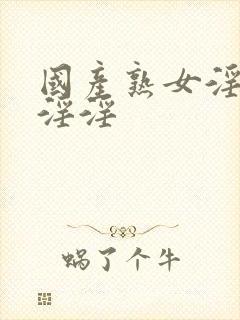 國產熟女淫
淫淫
蜗了个牛